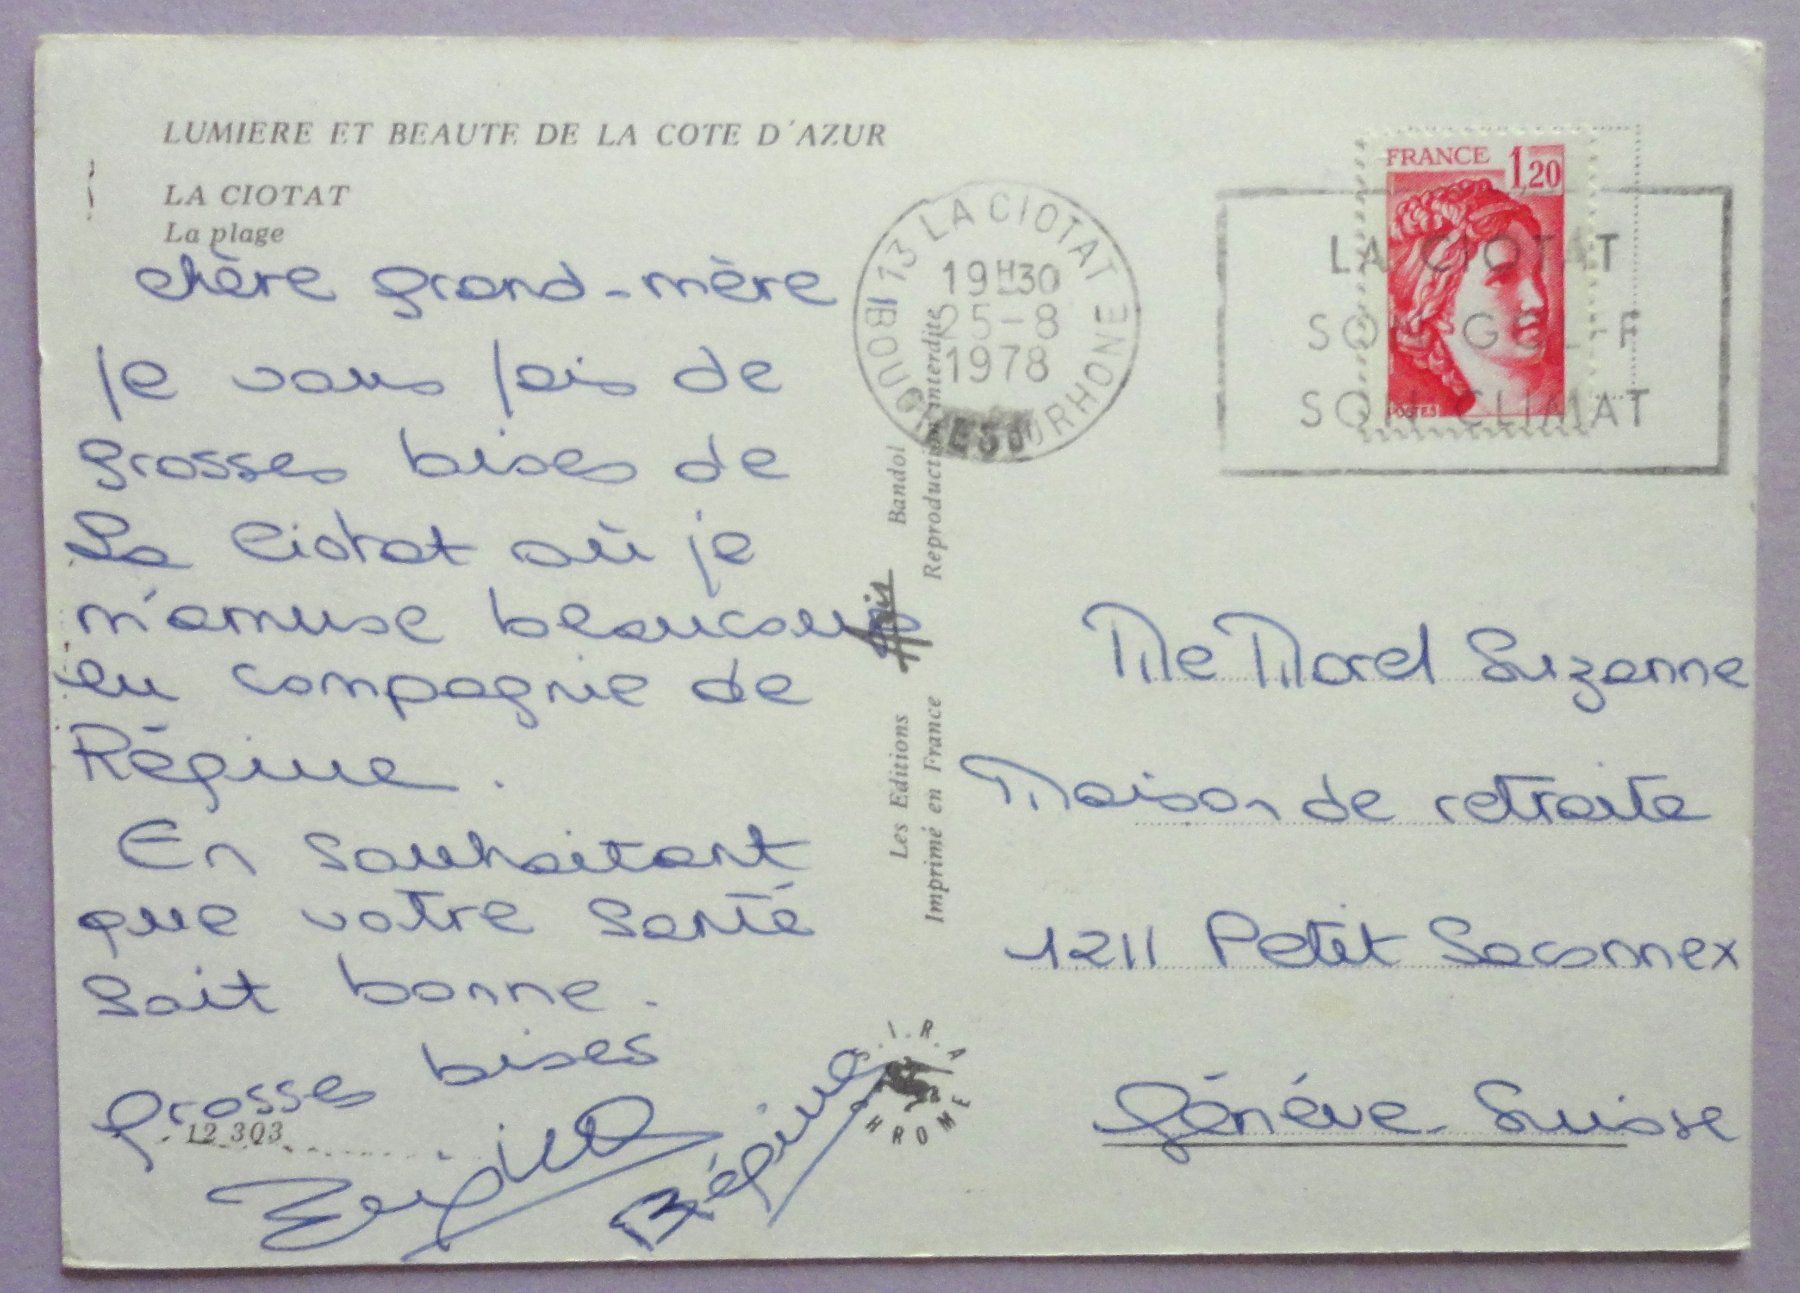 LUMIERE ET BEAUTE DE LA COTE D'AZUR
LA CIOTAT
La plage
chère grand-mère
je vous fais de
grosses bises de
La Ciotat où je
m'amuse beaucoup
en compagnie de
Régine.
En souhaitant
que votre santé
soit bonne.
Grosses bises
12 303
Régine
Les Editions Bandol
Imprimé en France Reproduction interdite
13 LA CIOTAT
BOUCHES DU RHONE
19H30
25-8
1978
FRANCE 1,20
POSTES
LA CIOTAT
SON GOLFE
SON CLIMAT
Me Morel Suzanne
Maison de retraite
1211 Petit Saconnex
Génève - Suisse